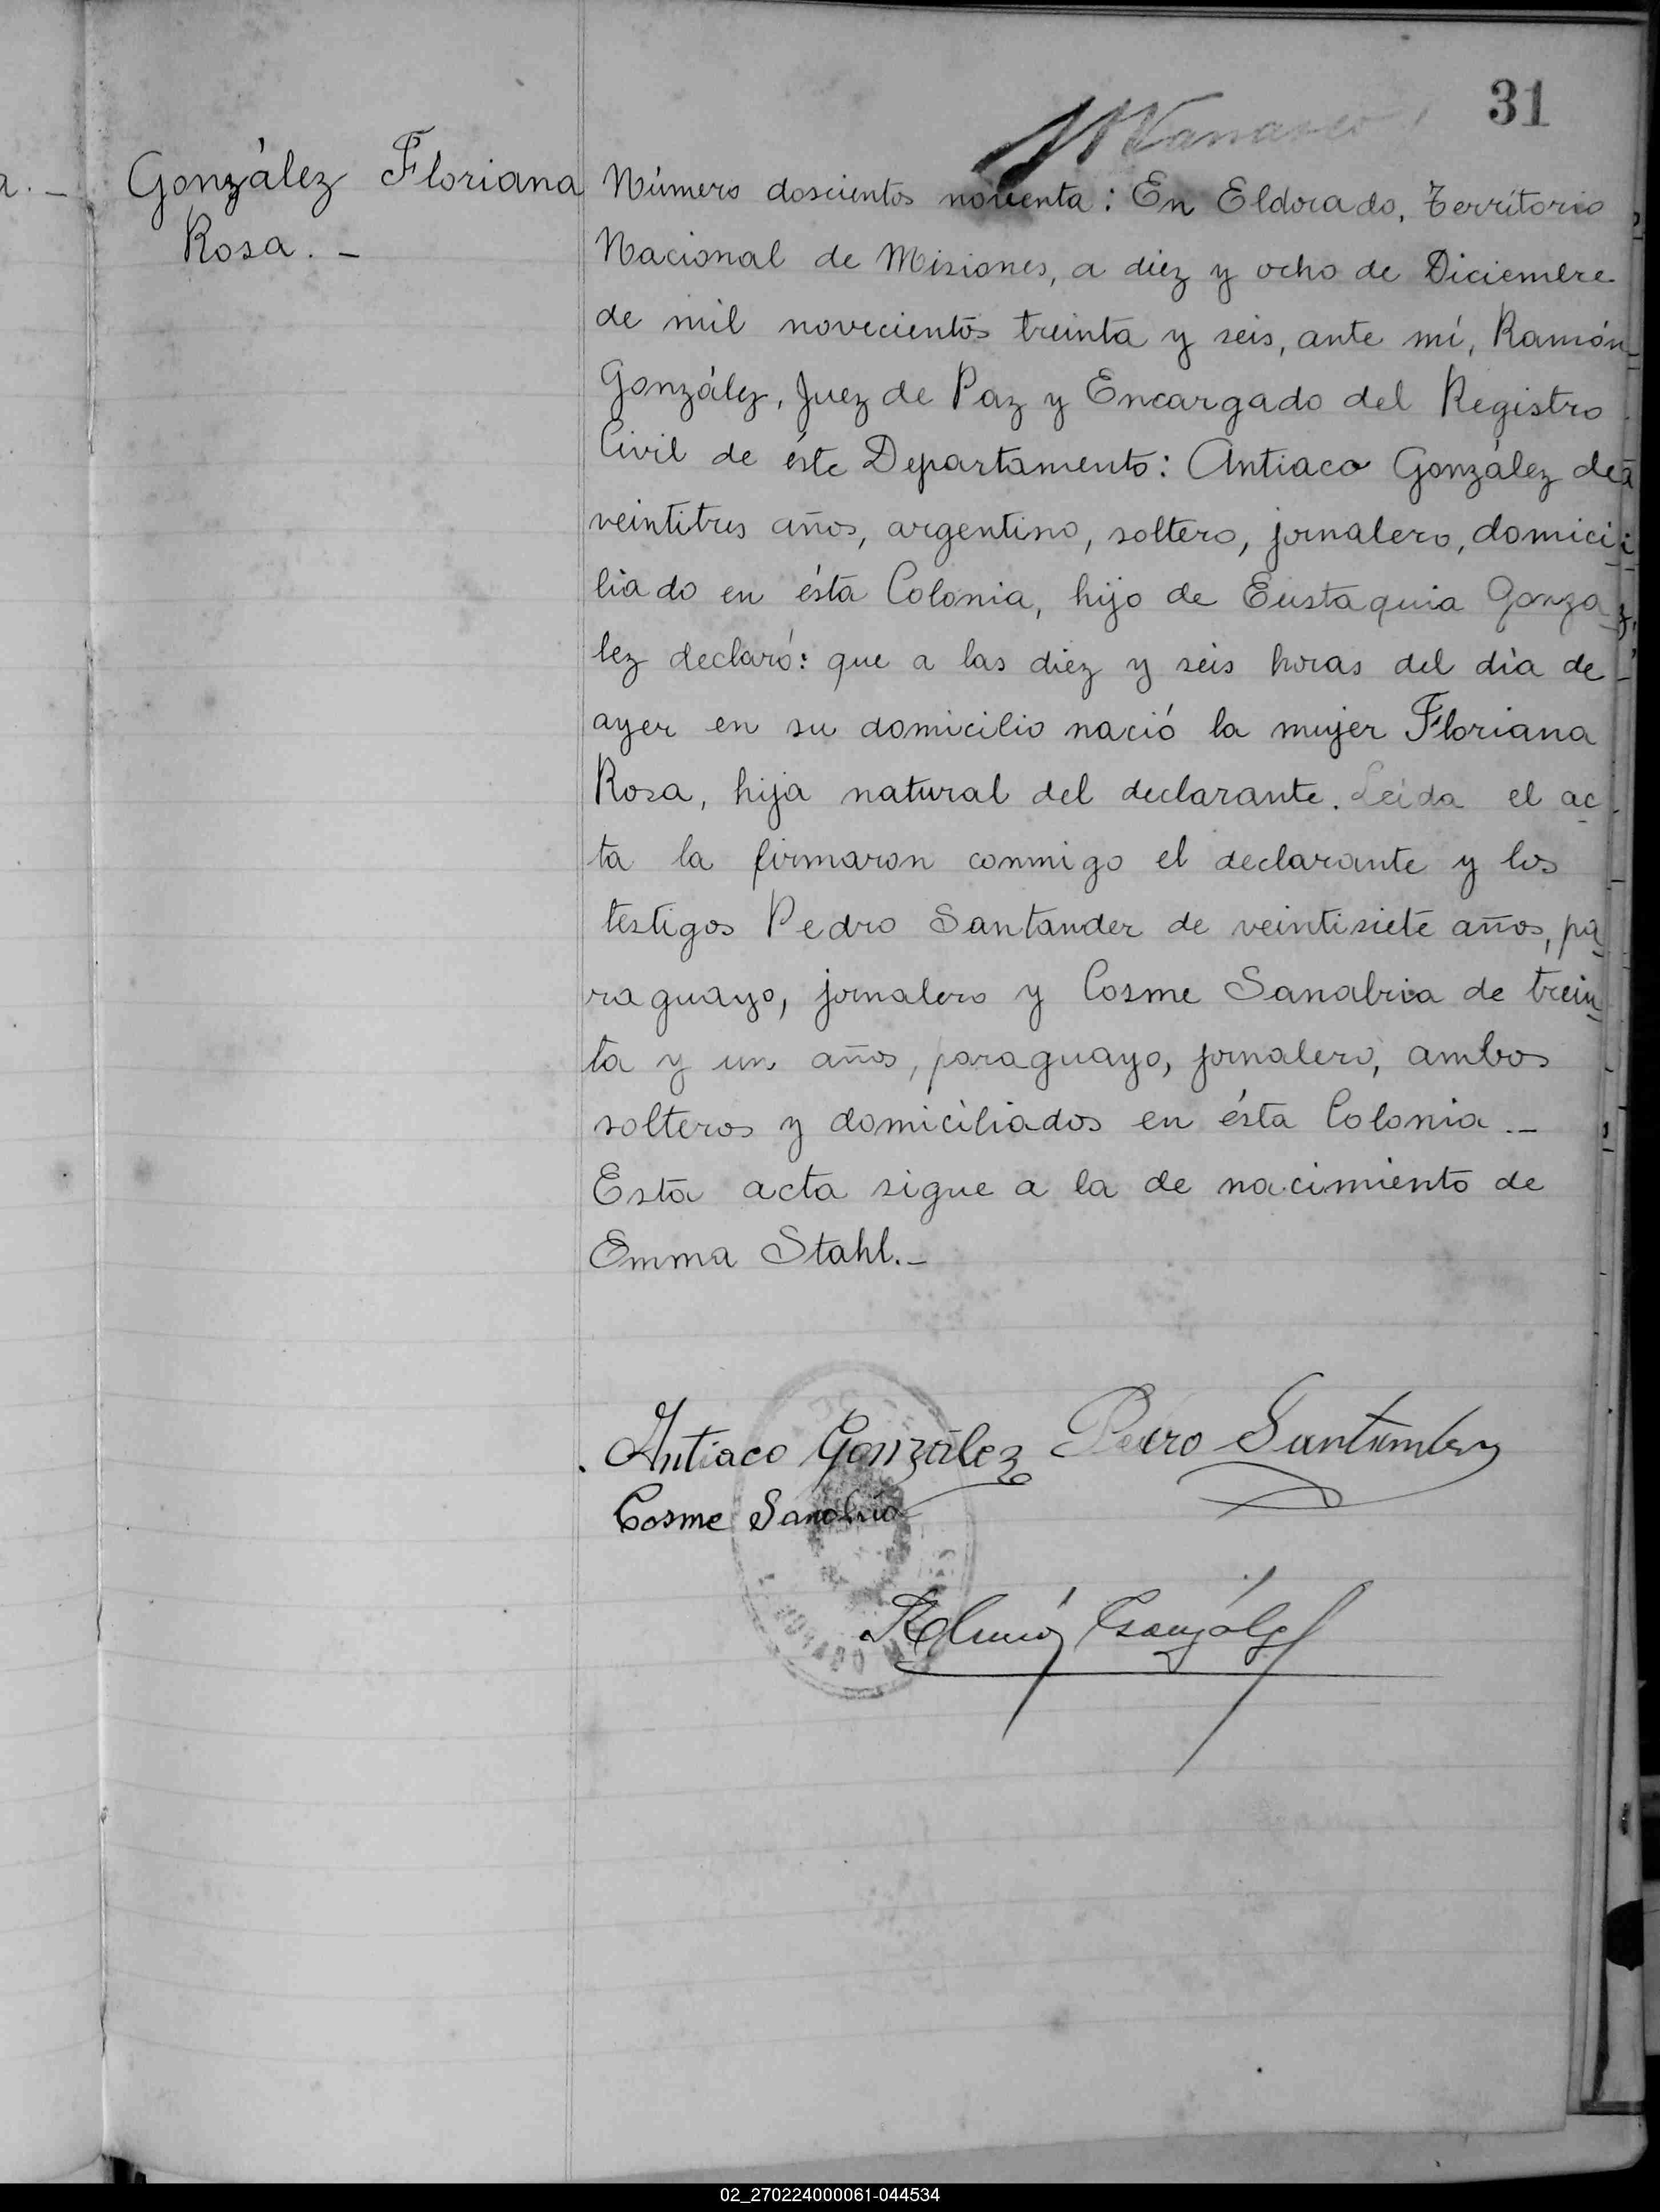 31
a. _
González Floriana
Rosa. _
Número doscientos noventa: En Eldorado, Territorio
Nacional de Misiones, a diez y ocho de Diciembre
de mil novecientos treinta y seis, ante mí, Ramón
González, Juez de Paz y Encargado del Registro
Civil de éste Departamento: Antiaco González de
veintitres años, argentino, soltero, jornalero, domici
liado en ésta Colonia, hijo de Eustaquia Gonza
lez declaró: que a las diez y seis horas del día de
ayer en su domicilio nació la mujer Floriana
Rosa, hija natural del declarante. Leida el ac
ta la firmaron conmigo el declarante y los
testigos Pedro Santander de veintisiete años, pa
raguayo, jornalero y Cosme Sanabria de trein
ta y un años, paraguayo, jornalero, ambos
solteros y domiciliados en ésta Colonia._
Esta acta sigue a la de nacimiento de
Emma Stahl._
Antiaco González Pedro Santander
Cosme Sanabria
Ramón González
02_270224000061-044534